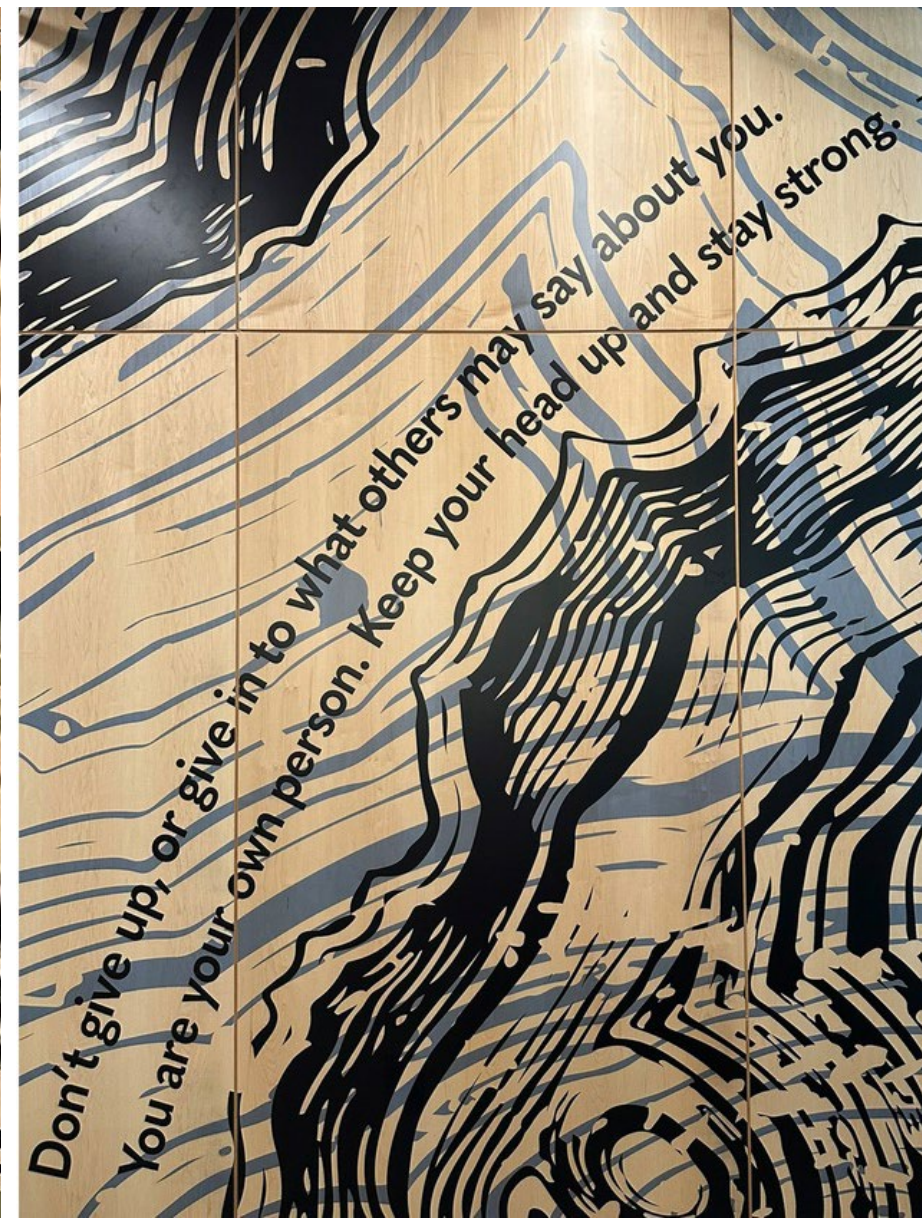 Don't give up, or give in to what others may say about you.
You are your own person. Keep your head up and stay strong.